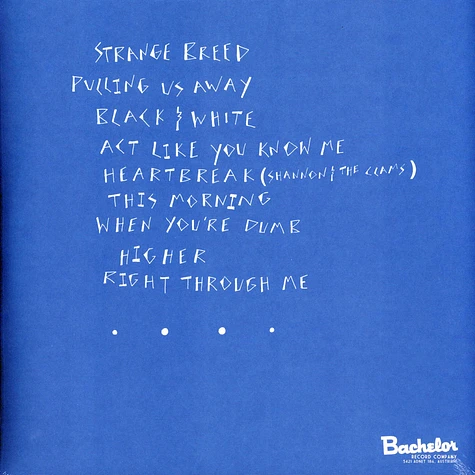 STRANGE BREED
PULLING US AWAY
BLACK & WHITE
ACT LIKE YOU KNOW ME
HEARTBREAK (SHANNON & THE CLAMS)
THIS MORNING
WHEN YOU'RE DUMB
HIGHER
RIGHT THROUGH ME
Bachelor
RECORD COMPANY
5421 ADNET 186, AUSTRIA